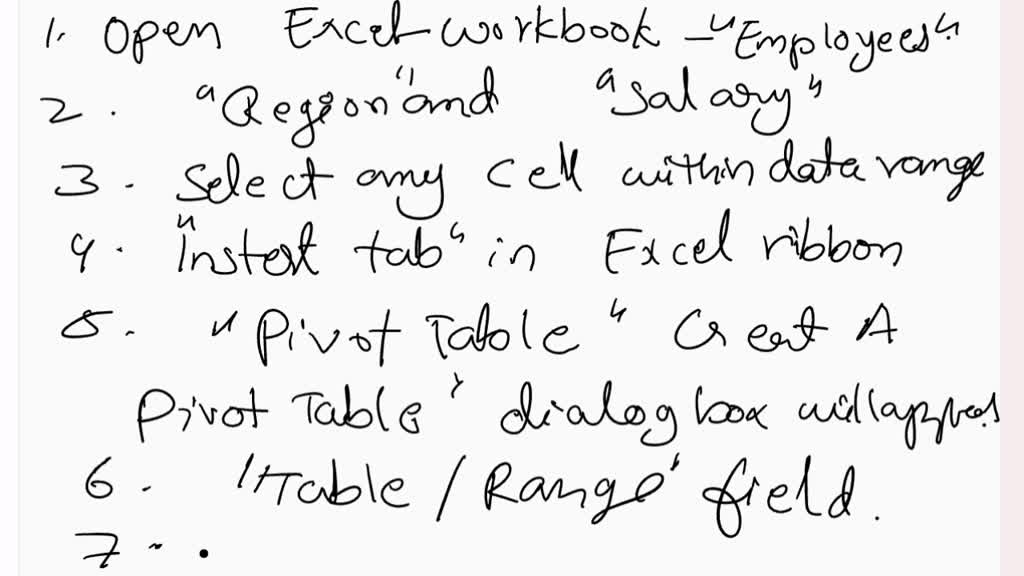 1. Open Excel workbook - "Employees".
2. "Region" and "Salary"
3. Select any cell within data range
4. "Instert tab" in Excel ribbon
5. "Pivot Table" Creat A
Pivot Table' dialog box will appear
6. 'Table / Range' field.
7 - .